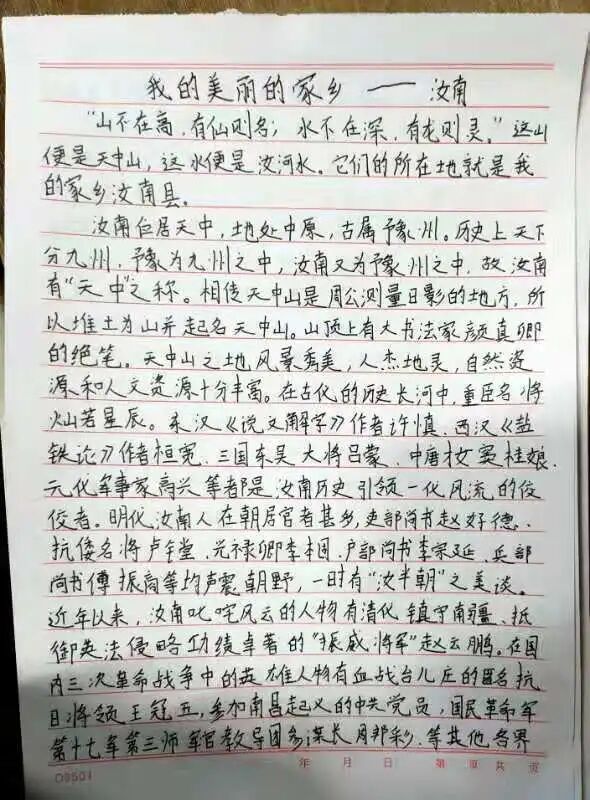 我的美丽的家乡 —— 汝南
"山不在高，有仙则名；水不在深，有龙则灵。"这山
便是天中山，这水便是汝河水。它们的所在地就是我
的家乡汝南县。
汝南位居天中，地处中原，古属予豫州。历史上天下
分九州，予豫为九州之中，汝南又为予豫州之中，故汝南
有"天中"之称。相传天中山是周公测量日影的地方，所
以堆土为山并起名天中山。山顶上有大书法家颜真卿
的绝笔。天中山之地风景秀美，人杰地灵，自然资
源和人文资源十分丰富。在古代的历史长河中，重臣名将
灿若星辰。东汉《说文解字》作者许慎、西汉《盐
铁论》作者桓宽、三国东吴大将吕蒙、中唐才女窦桂娘、
元代军事家高兴等都是汝南历史引领一代风流的佼
佼者。明代汝南人在朝居官者甚多，吏部尚书赵好德、
抗倭名将卢镗、光禄卿李本固、户部尚书李宗延、兵部
尚书傅振商等均声震朝野，一时有"汝半朝"之美谈。
近年以来，汝南叱咤风云的人物有清代镇守南疆、抵
御英法侵略功绩卓著的"振威将军"赵云鹏。在国
内三次革命战争中的英雄人物有血战台儿庄的著名抗
日将领王冠五，参加南昌起义的中共党员，国民革命军
第十七军第三师军官教导团参谋长周邦彩、等其他各界
年 月 日 第 页 共 页